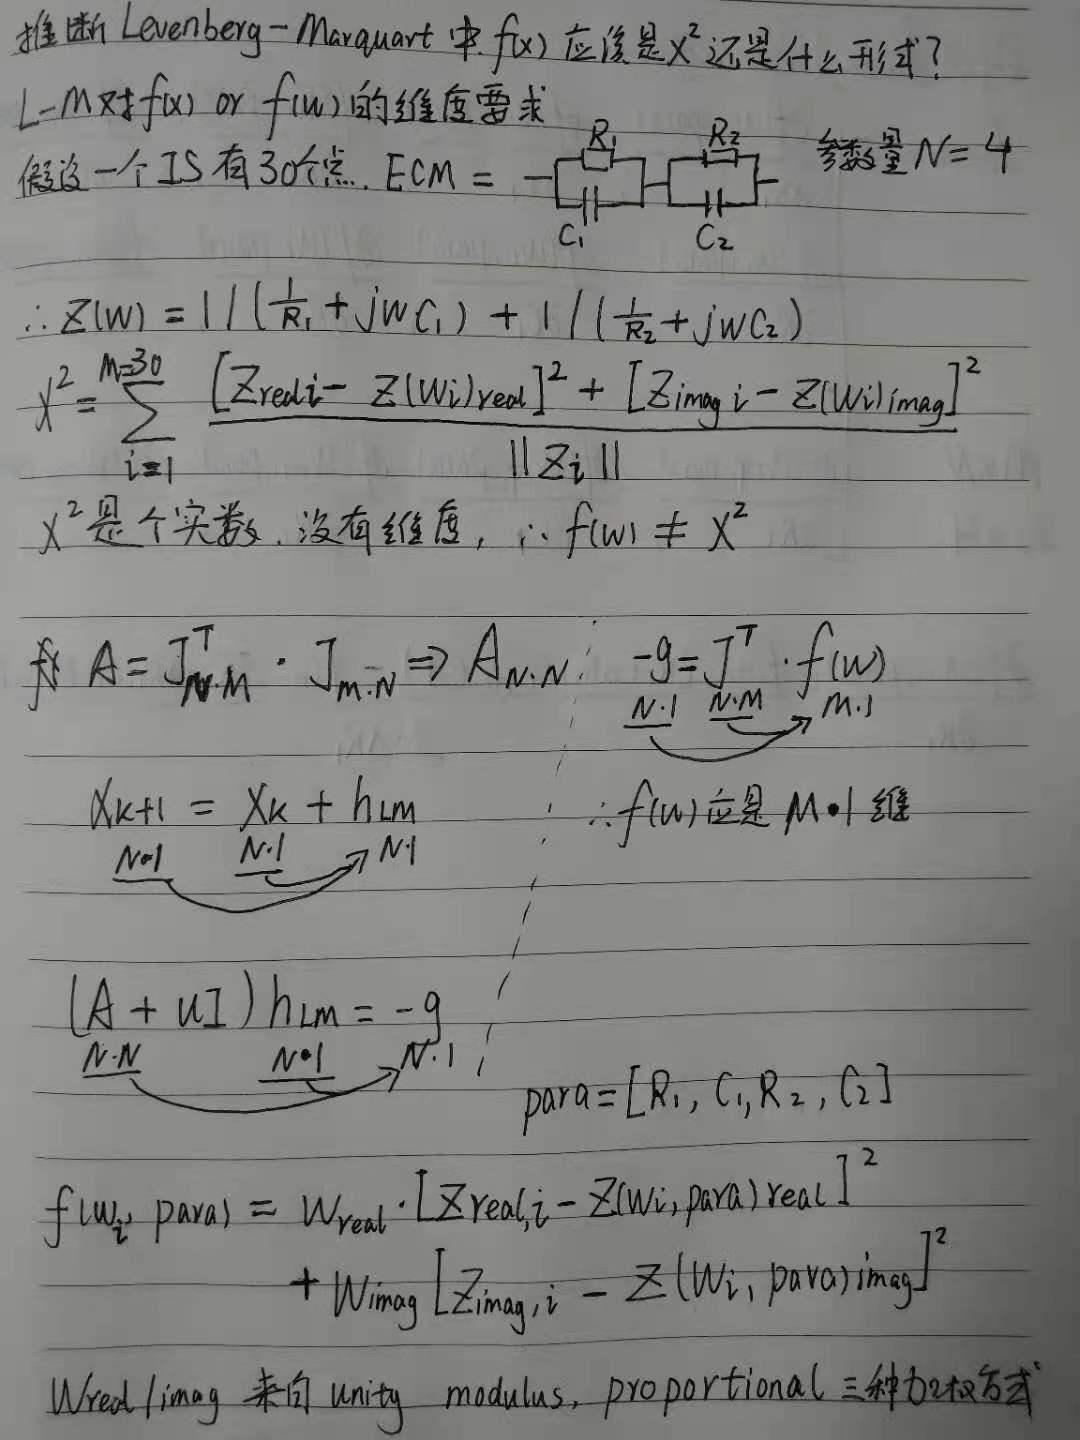 推断 Levenberg-Marquart 中 f(x) 应该是 X² 还是什么形式?
L-M对 f(x) or f(w) 的维度要求
假设一个IS有30个点. ECM = R₁ C₁ R₂ C₂ 参数量 N = 4
∴ Z(w) = 1/(1/R₁ + jwC₁) + 1/(1/R₂ + jwC₂)
X² = Σ_{i=1}^{M=30} ([Zreal i - Z(wi)real]² + [Zimag i - Z(wi)imag]²) / ||Zi||
X² 是个实数, 没有维度, ∴ f(w) ≠ X²
A = Jᵀ_{N·M} · J_{M·N} ⇒ A_{N·N}
-g = Jᵀ · f(w)
N·1 N·M M·1
X_{K+1} = X_K + h_{LM}
N·1 N·1 N·1
∴ f(w) 应是 M·1 维
(A + uI) h_{LM} = -g
N·N N·1 N·1
para = [R₁, C₁, R₂, C₂]
f(wi, para) = Wreal · [Zreal,i - Z(wi, para)real]²
+ Wimag [Zimag,i - Z(wi, para)imag]²
Wreal/imag 来自 unity modulus, proportional 三种加权方式